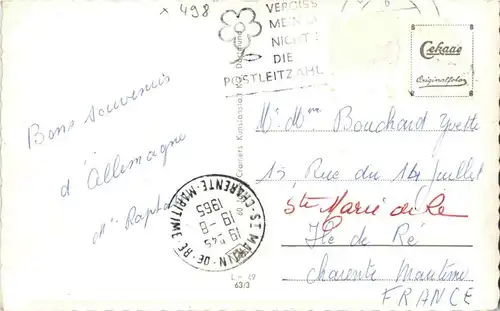 x 498
VERGISS
MEIN
NICHT
DIE
POSTLEITZAHL
Cekade
Originalfoto
Bons souvenirs
d'Allemagne
Cramers Kunstanstalt KG. Dortmund
ST MARTIN-DE-RE
CHARENTE-MARITIME
19 H45
19 - 8
1965
M. Mme Bouchard Yvette
15, Rue du 14 Juillet
Ste Marie de Ré
Ile de Ré
Charente Maritime
FRANCE
L - 69
63/3